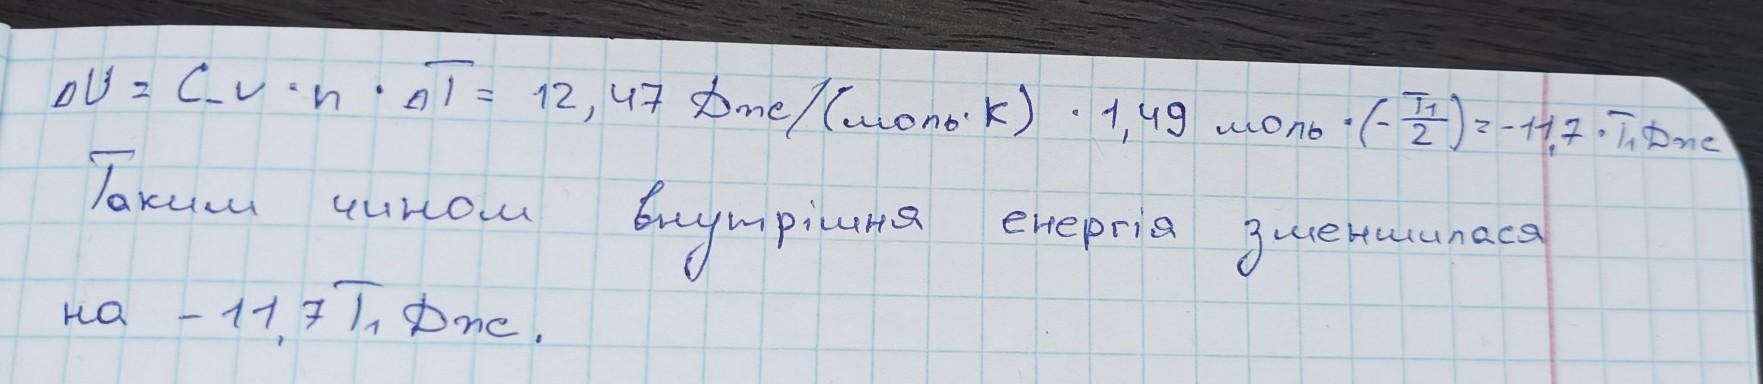 ΔU = C_v · n · ΔT = 12,47 Дж/(моль·К) · 1,49 моль · (-T₁/2) = -11,7 · T₁ Дж
Таким чином внутрішня енергія зменшилася
на -11,7 T₁ Дж.